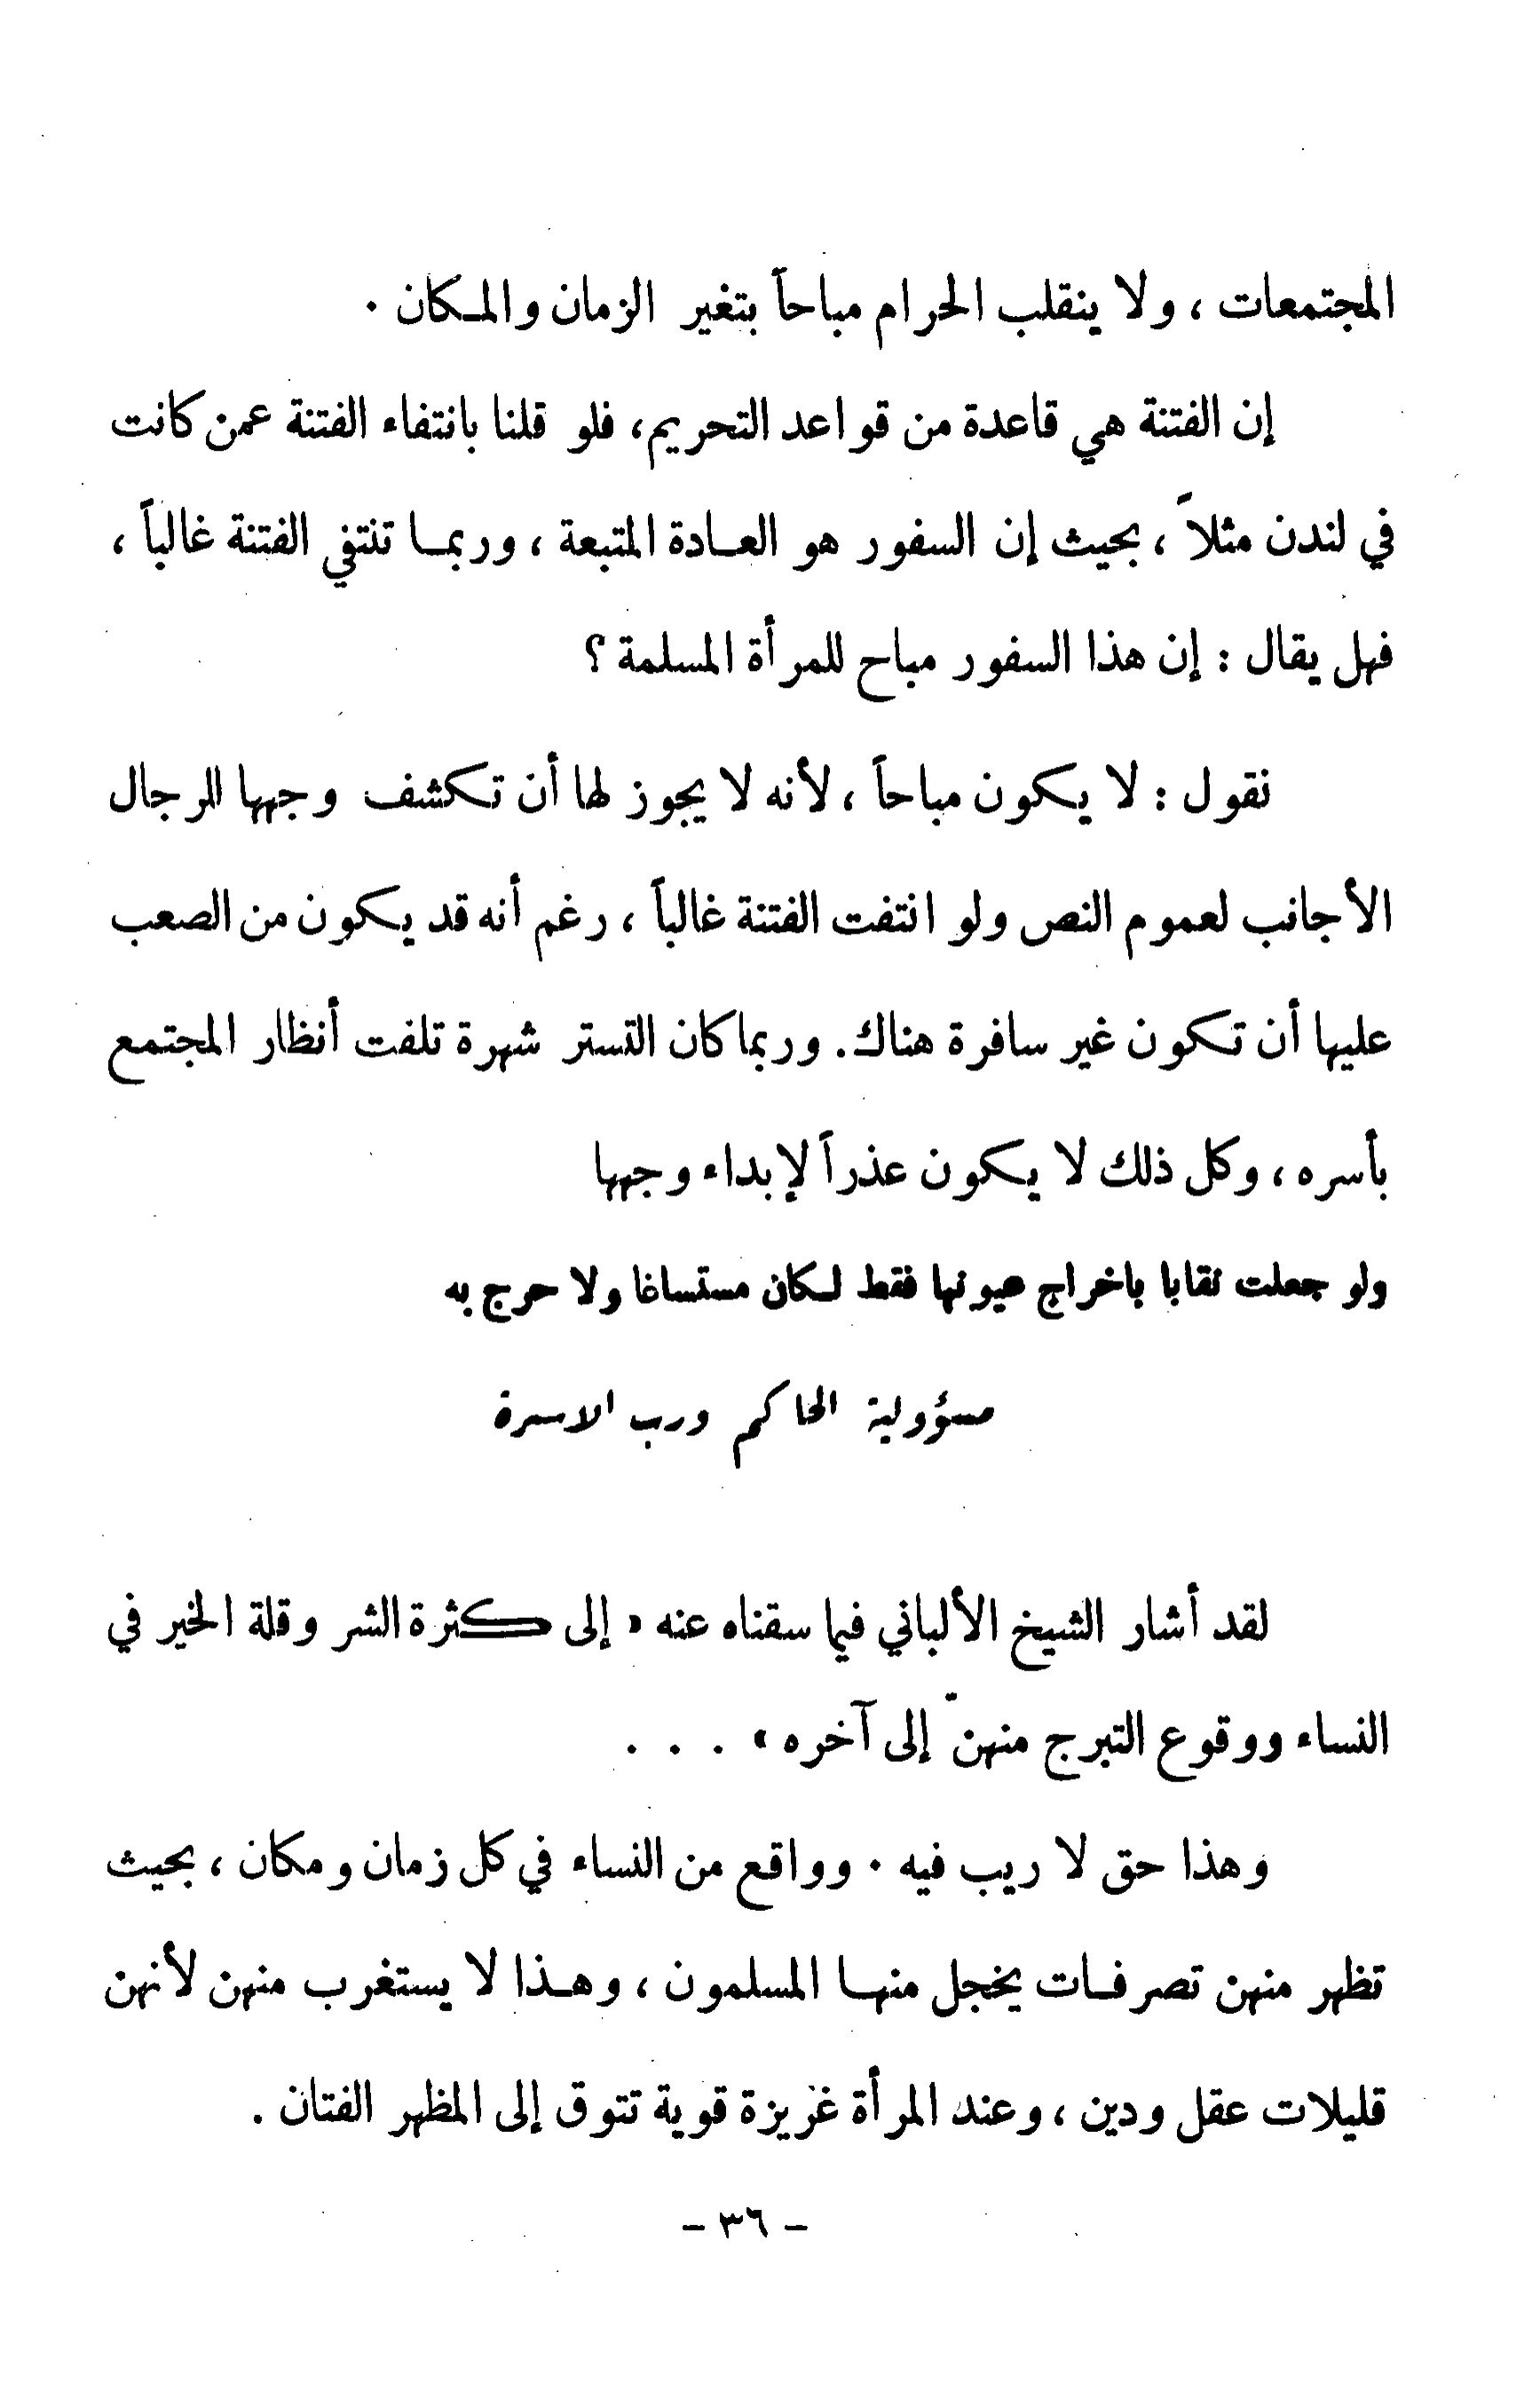 المجتمعات ، ولا ينقلب الحرام مباحاً بتغير الزمان والمكان ٠
إن الفتنة هي قاعدة من قواعد التحريم، فلو قلنا بانتفاء الفتنة عمن كانت
في لندن مثلاً ، بحيث إن السفور هو العادة المتبعة ، وربما تنتفي الفتنة غالباً ،
فهل يقال : إن هذا السفور مباح للمرأة المسلمة ؟
نقول : لا يكون مباحاً ، لأنه لا يجوز لها أن تكشف وجهها للرجال
الأجانب لعموم النص ولو انتفت الفتنة غالباً ، رغم أنه قد يكون من الصعب
عليها أن تكون غير سافرة هناك. وربما كان التستر شهرة تلفت أنظار المجتمع
بأسره ، وكل ذلك لا يكون عذراً لإبداء وجهها
ولو جعلت نقابا باخراج عيونها فقط لكان مستساغا ولا حرج به
مسؤولية الحاكم ورب الاسرة
لقد أشار الشيخ الألباني فيما سقناه عنه « إلى كثرة الشر وقلة الخير في
النساء ووقوع التبرج منهنّ إلى آخره » . . .
وهذا حق لا ريب فيه ٠ وواقع من النساء في كل زمان ومكان ، بحيث
تظهر منهن تصرفات يخجل منها المسلمون ، وهذا لا يستغرب منهن لأنهن
قليلات عقل ودين ، وعند المرأة غريزة قوية تتوق إلى المظهر الفتان .
- ٣٦ -